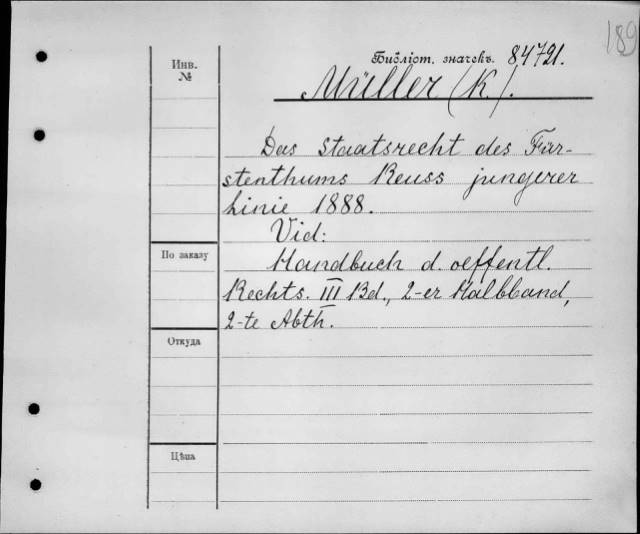 189
Инв.
№
Библіот. значекъ. 84721.
Müller (K.).
Das Staatsrecht des Für-
stenthums Reuss jungerer
Linie 1888.
Vid:
Handbuch d. oeffentl.
Rechts. III Bd., 2-er Halbband,
2-te Abth.
По заказу
Откуда
Цѣна